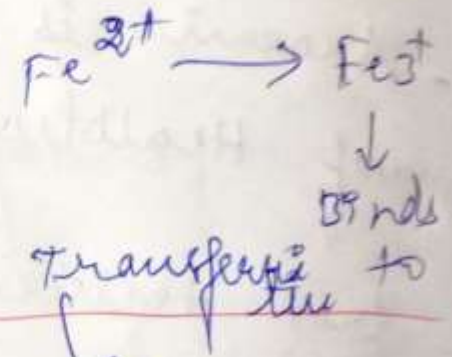 Fe2+ → Fe3+
↓
Binds
Transferrin to
the